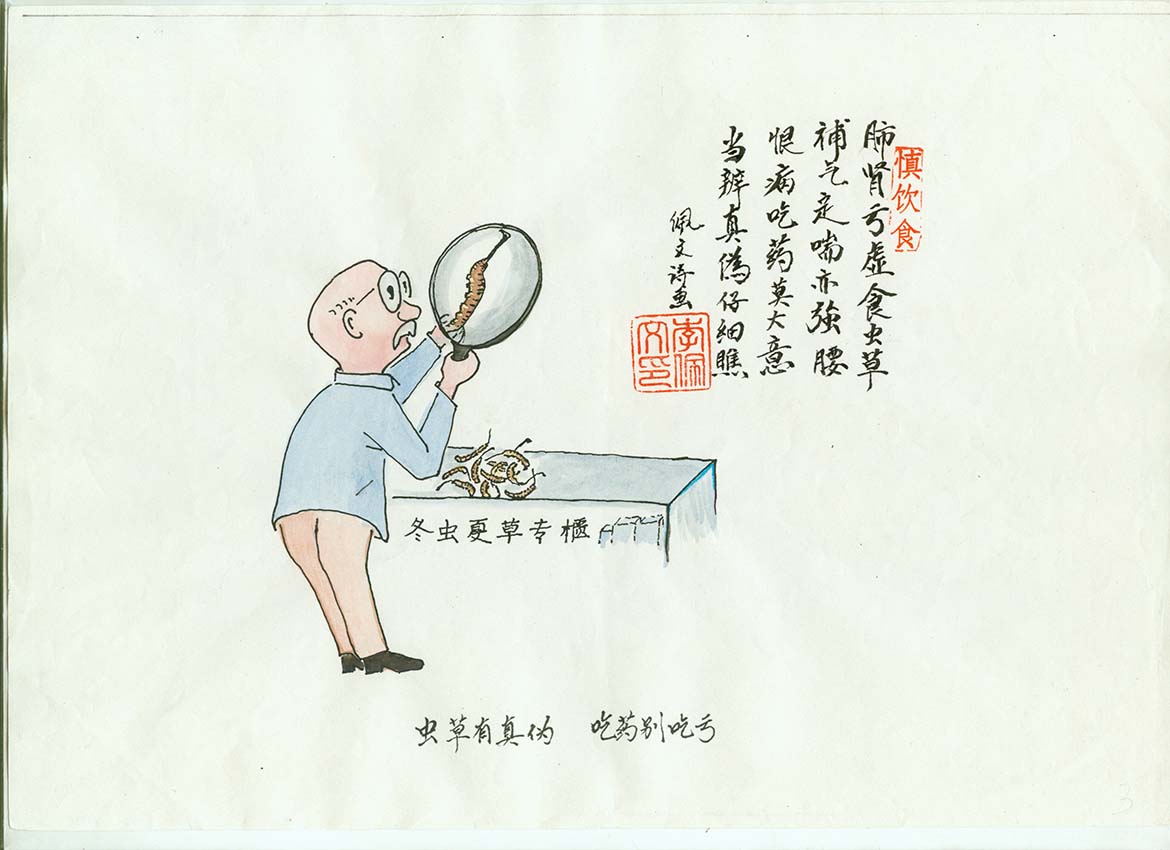 慎饮食
肺肾亏虚食虫草
補气定喘亦強腰
恨病吃药莫大意
当辨真偽仔细瞧
佩文诗画
李佩文印
冬虫夏草专櫃
虫草有真伪 吃药别吃亏
3